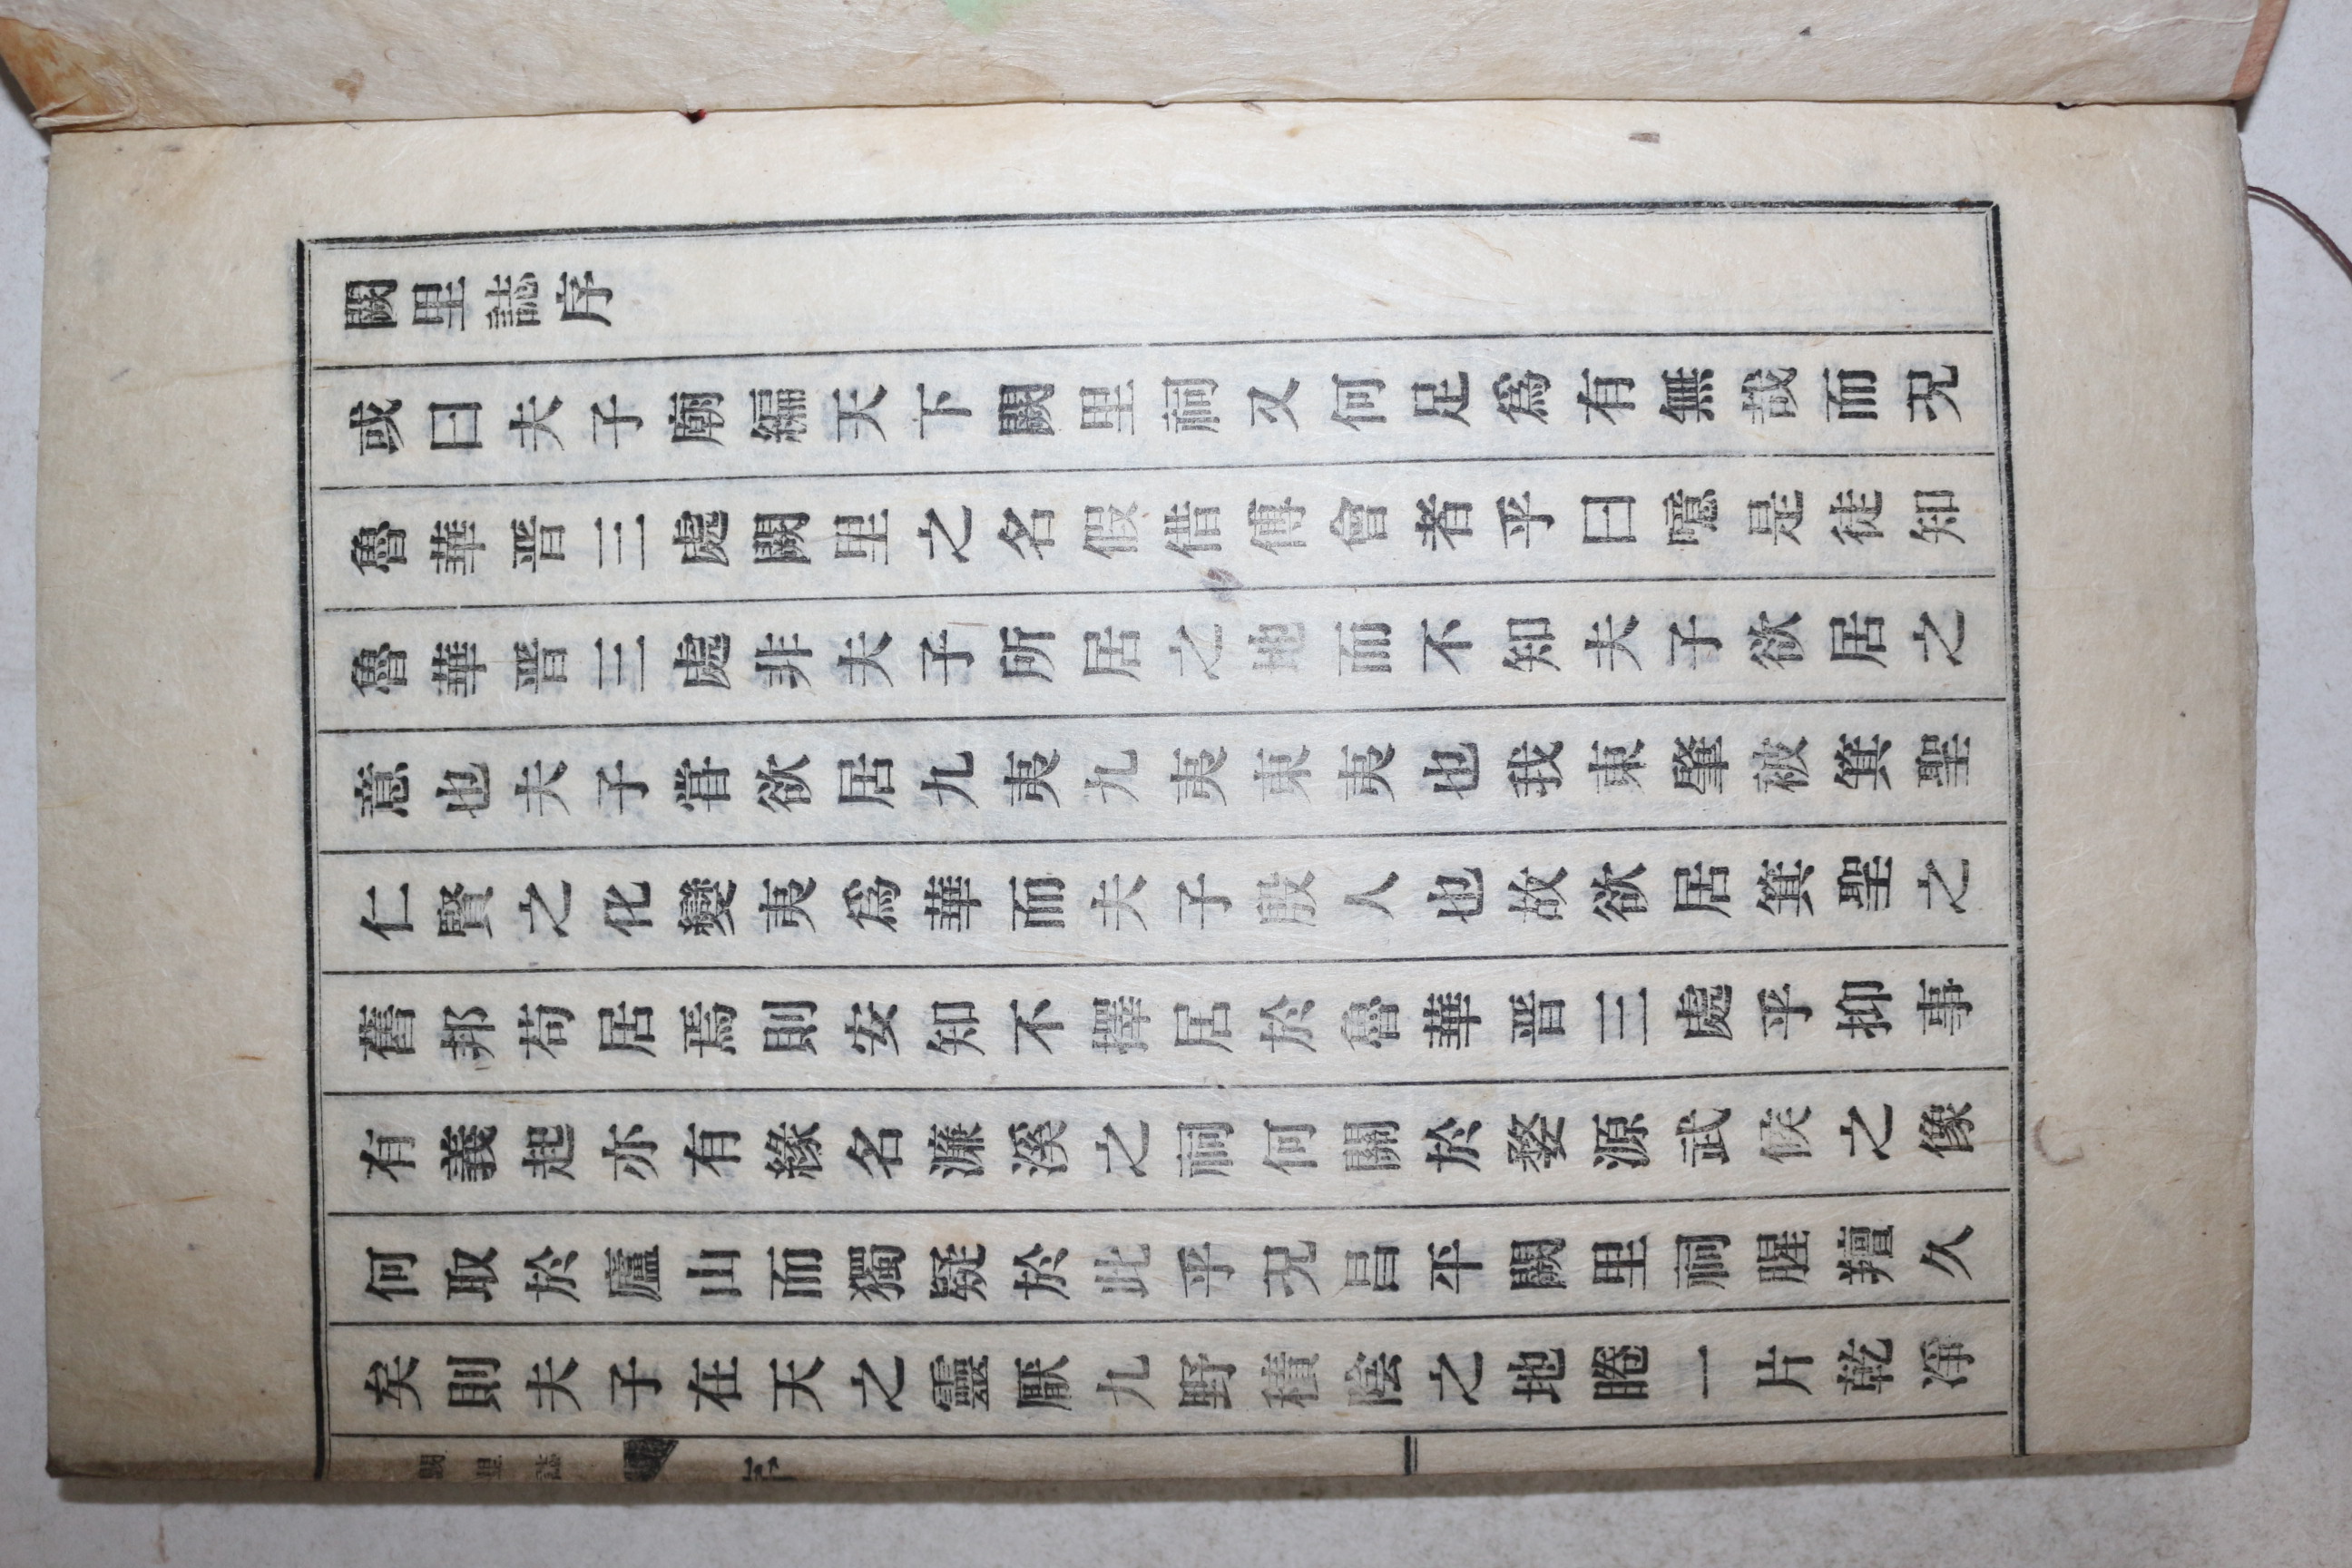 闕里誌序
或曰夫子廟編天下闕里祠又何足爲有無哉而況
魯華晋三處闕里之名假借傅會者乎曰噫是徒知
魯華晋三處非夫子所居之地而不知夫子欲居之
意也夫子甞欲居九夷九夷東夷也我東肇被箕聖
仁賢之化變夷爲華而夫子殷人也故欲居箕聖之
舊邦苟居焉則安知不擇居於魯華晋三處乎抑事
有義起亦有緣名濂溪之祠何關於婺源武侯之像
何取於廬山而獨疑於此乎况昌平闕里祠腥羶久
矣則夫子在天之靈厭九野積陰之地睠一片乾淨
闕里誌
序